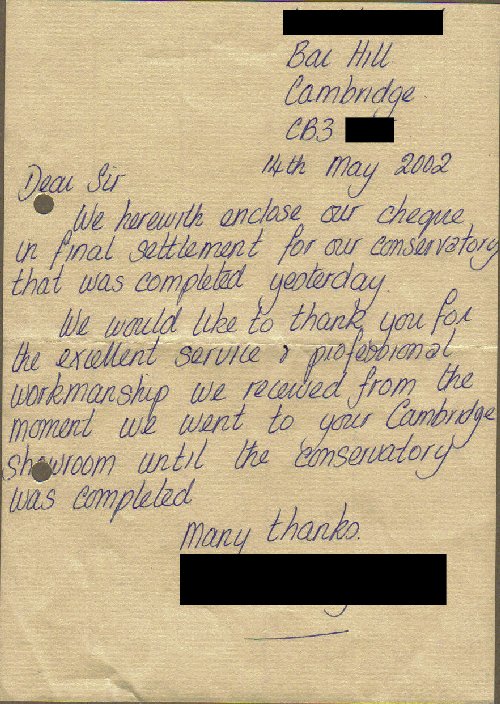 Bar Hill
Cambridge.
CB3
14th May 2002
Dear Sir
We herewith enclose our cheque
in final settlement for our conservatory
that was completed yesterday.
We would like to thank you for
the excellent service & professional
workmanship we received from the
moment we went to your Cambridge
showroom until the conservatory
was completed
Many thanks.